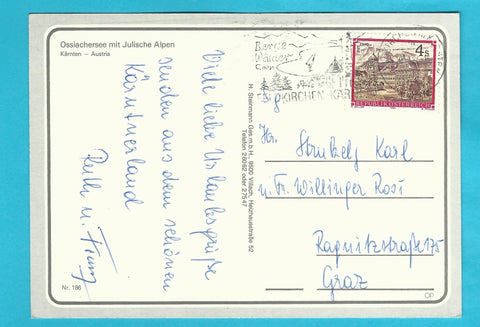 Ossiachersee mit Julische Alpen
Kärnten – Austria
Viele liebe Urlaubsgrüße
senden aus dem schönen
Kärntnerland
Ruth u. Franz
Nr. 186
H. Steinmann Ges.m.b.H., 9500 Villach, Heizhausstraße 52
Telefon 28062 oder 27547
Berge
Wälder
KIRCHEN KÄR
4 S
REPUBLIK ÖSTERREICH
Hr. Strukelj Karl
u. Fr. Willinger Rosi
Ragnitzstraße 175
Graz